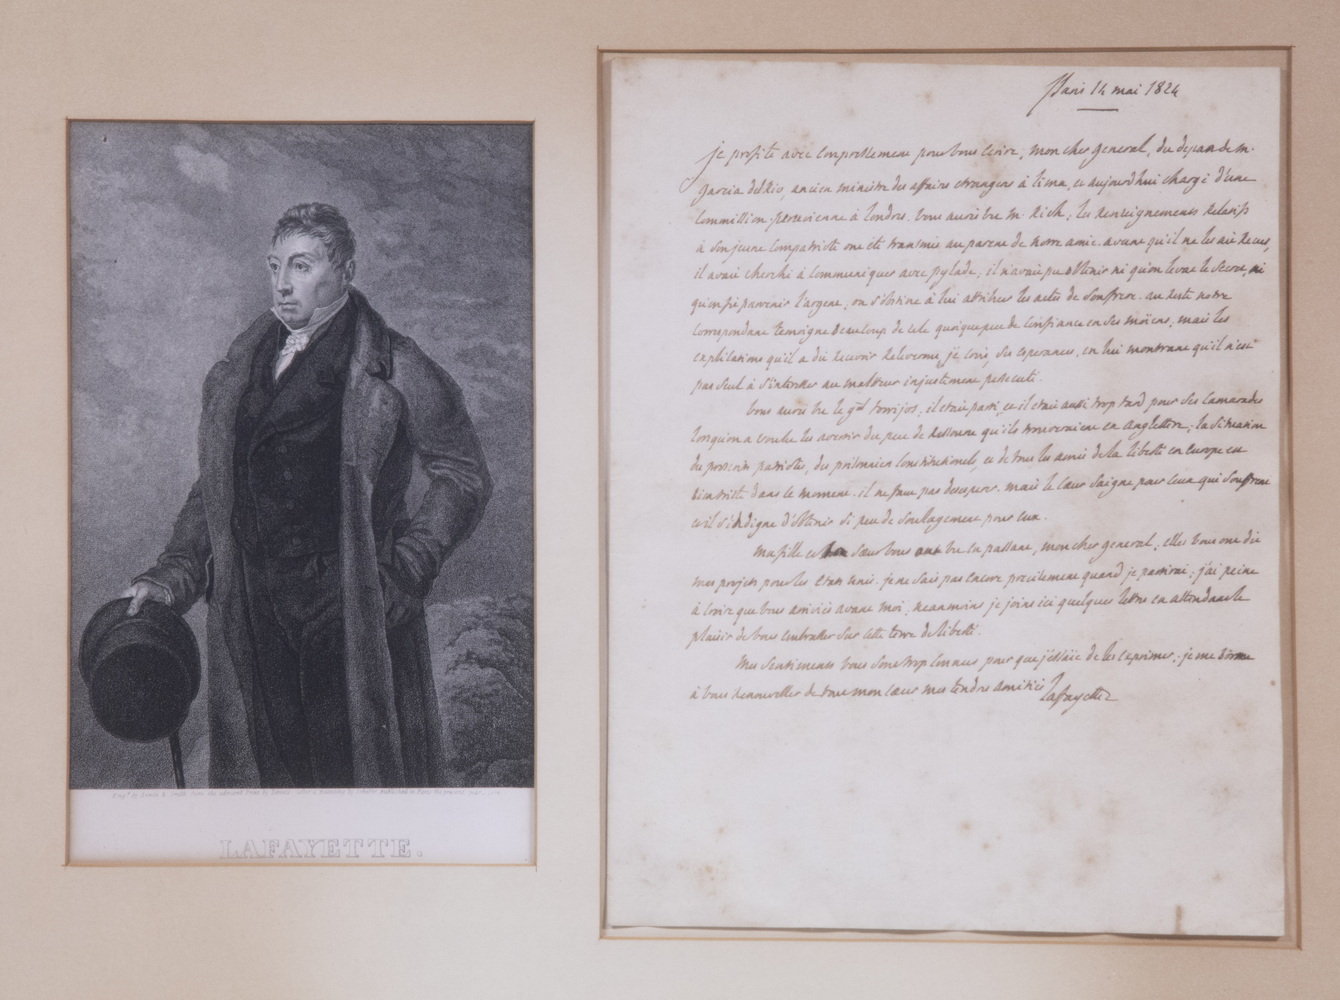 LAFAYETTE.
Paris 14 mai 1824
je profite avec empressement pour vous ecrire, mon cher general, du depart de m.
Garcia del Rio, ancien ministre des affaires etrangeres à lima, et aujourd'hui chargé d'une
Commission peruvienne à londres. vous aures vu m. Rich; les renseignements relatifs
à son jeune compatriote ont été transmis au parent de notre amie. avant qu'il ne les ait recus,
il avait cherché à communiquer avec pylade; il n'avait pu obtenir ni qu'on levat le secret, ni
qu'on fit parvenir l'argent; on s'obstine à lui attribuer les actes de Souffrere. au reste notre
correspondant temoigne beaucoup de zele quoique peu de confiance en ses moïens, mais les
explications qu'il a dû recevoir releveront, je crois, ses esperances, en lui montrant qu'il n'est
pas seul à s'interesser au malheur injustement persecuté.
vous aures vu le gal torrijos; il etait parti, et il etait aussi trop tard pour ses camarades
lorsqu'on a voulu les avertir du peu de ressource qu'ils trouveraient en angleterre; la situation
des proscrits patriotes, des prisonniers constitutionels, et de tous les amis de la liberté en Europe est
bien triste dans le moment. il ne faut pas desesperer. mais le cœur saigne pour ceux qui souffrent
et il s'indigne d'obtenir si peu de soulagement pour eux.
ma fille et sa sœur vous ont vu en passant, mon cher general; elles vous ont dit
mes projets pour les Etats unis. je ne sais pas encore precisement quand je partirai; j'ai peine
à croire que vous arriviés avant moi, neanmoins je joins ici quelques lettres en attendant le
plaisir de vous embrasser sur cette terre de liberté.
Mes sentiments vous sont trop connus pour que j'essaïe de les exprimer; je me borne
à vous renouveller de tout mon cœur mes tendres amitiés
Lafayette